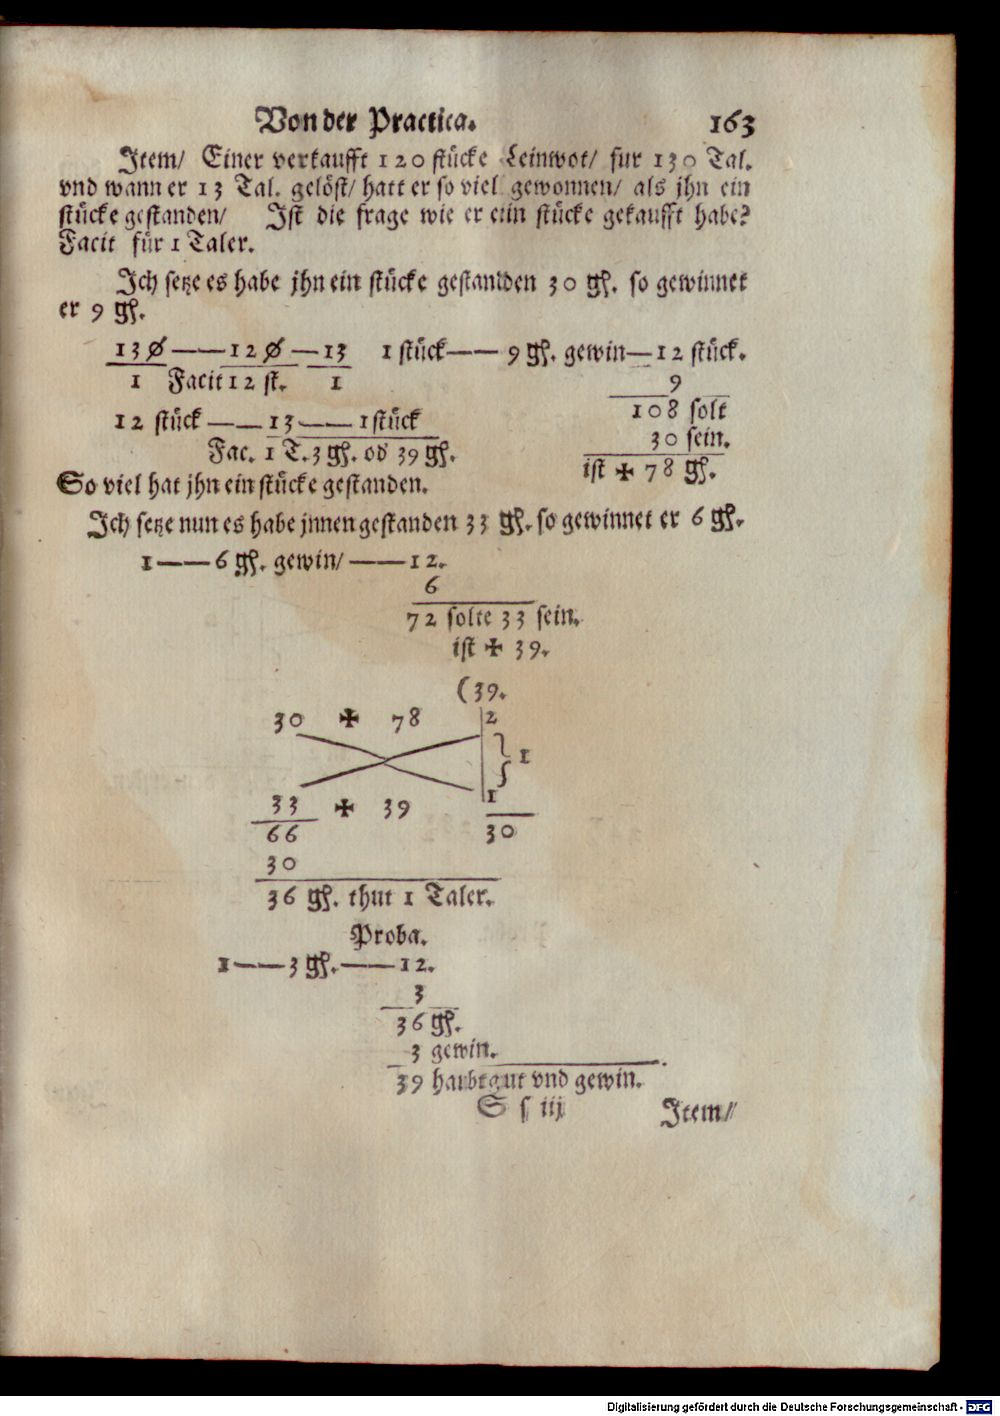 Von der Practica. 163
Item/ Einer verkaufft 120 stücke Leinwot/ fur 130 Tal.
vnd wann er 13 Tal. gelöst/ hatt er so viel gewonnen/ als jhn ein
stücke gestanden/ Ist die frage wie er eiin stücke gekaufft habe?
Facit für 1 Taler.
Ich setze es habe jhn ein stücke gestandden 30 gß. so gewinnet
er 9 gß.
130 —— 120 — 13 1 stück —— 9 gß. gewin — 12 stück.
1 Facit 12 st. 1 9
108 solt
12 stück —— 13 —— 1 stück
30 sein.
Fac. 1 T. 3 gß. od 39 gß.
ist ✠ 78 gß.
So viel hat jhn ein stücke gestanden.
Ich setze nun es habe jnnen gestanden 33 gß. so gewinnet er 6 gß.
1 —— 6 gß. gewin/ —— 12.
6
72 solte 33 sein.
ist ✠ 39.
(39.
30 ✠ 78 2
1
1
33 ✠ 39
66 30
30
36 gß. thut 1 Taler.
Proba.
1 —— 3 gß. —— 12.
3
36 gß.
3 gewin.
39 haubtgut vnd gewin.
S s iij Item/
Digitalisierung gefördert durch die Deutsche Forschungsgemeinschaft - DFG